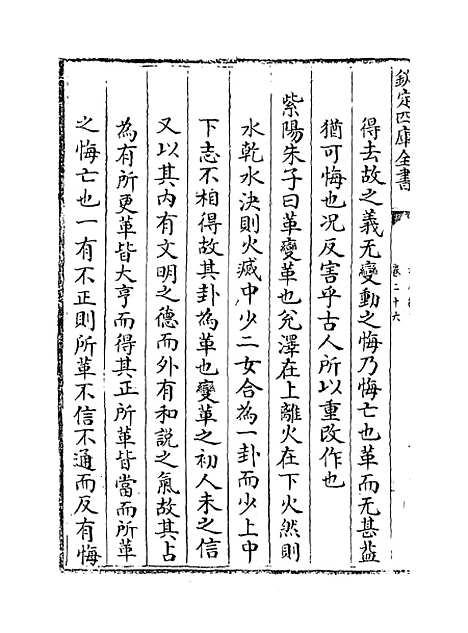 欽定四庫全書
卷二十六
得去故之義无變動之悔乃悔亡也革而无甚益
猶可悔也况反害乎古人所以重改作也
紫陽朱子曰革變革也兊澤在上離火在下火然則
水乾水决則火滅中少二女合為一卦而少上中
下志不相得故其卦為革也變革之初人未之信
又以其内有文明之德而外有和說之氣故其占
為有所更革皆大亨而得其正所革皆當而所革
之悔亡也一有不正則所革不信不通而反有悔